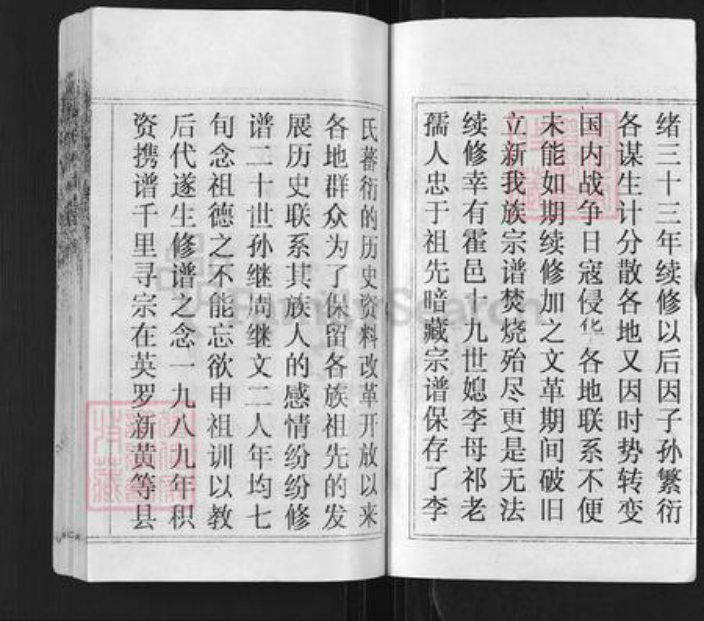 绪三十三年续修以后因子孙繁衍
各谋生计分散各地又因时势转变
国内战争日寇侵华各地联系不便
未能如期续修加之文革期间破旧
立新我族宗谱焚烧殆尽更是无法
续修幸有霍邑十九世媳李母祁老
孺人忠于祖先暗藏宗谱保存了李
氏蕃衍的历史资料改革开放以来
各地群众为了保留各族祖先的发
展历史联系其族人的感情纷纷修
谱二十世孙继周继文二人年均七
旬念祖德之不能忘欲申祖训以教
后代遂生修谱之念一九八九年积
资携谱千里寻宗在英罗新黄等县
FamilySearch